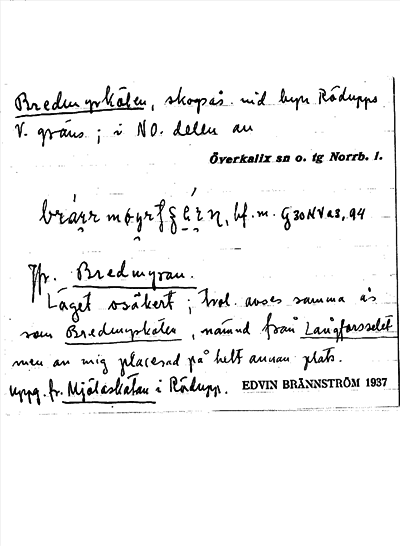 Bredmyrkölen, skogsås vid byn Rödupps
V. gräns ; i NO. delen av
Överkalix sn o. tg Norrb. l.
bf. m. G 30 N V a 3, 94
Jfr. Bredmyran.
Läget osäkert ; trol. avses samma ås
som Bredmyrkölen, nämnd från Långforsselet
men av mig placerad på helt annan plats.
Uppg. fr. i Rödupp. EDVIN BRÄNNSTRÖM 1937